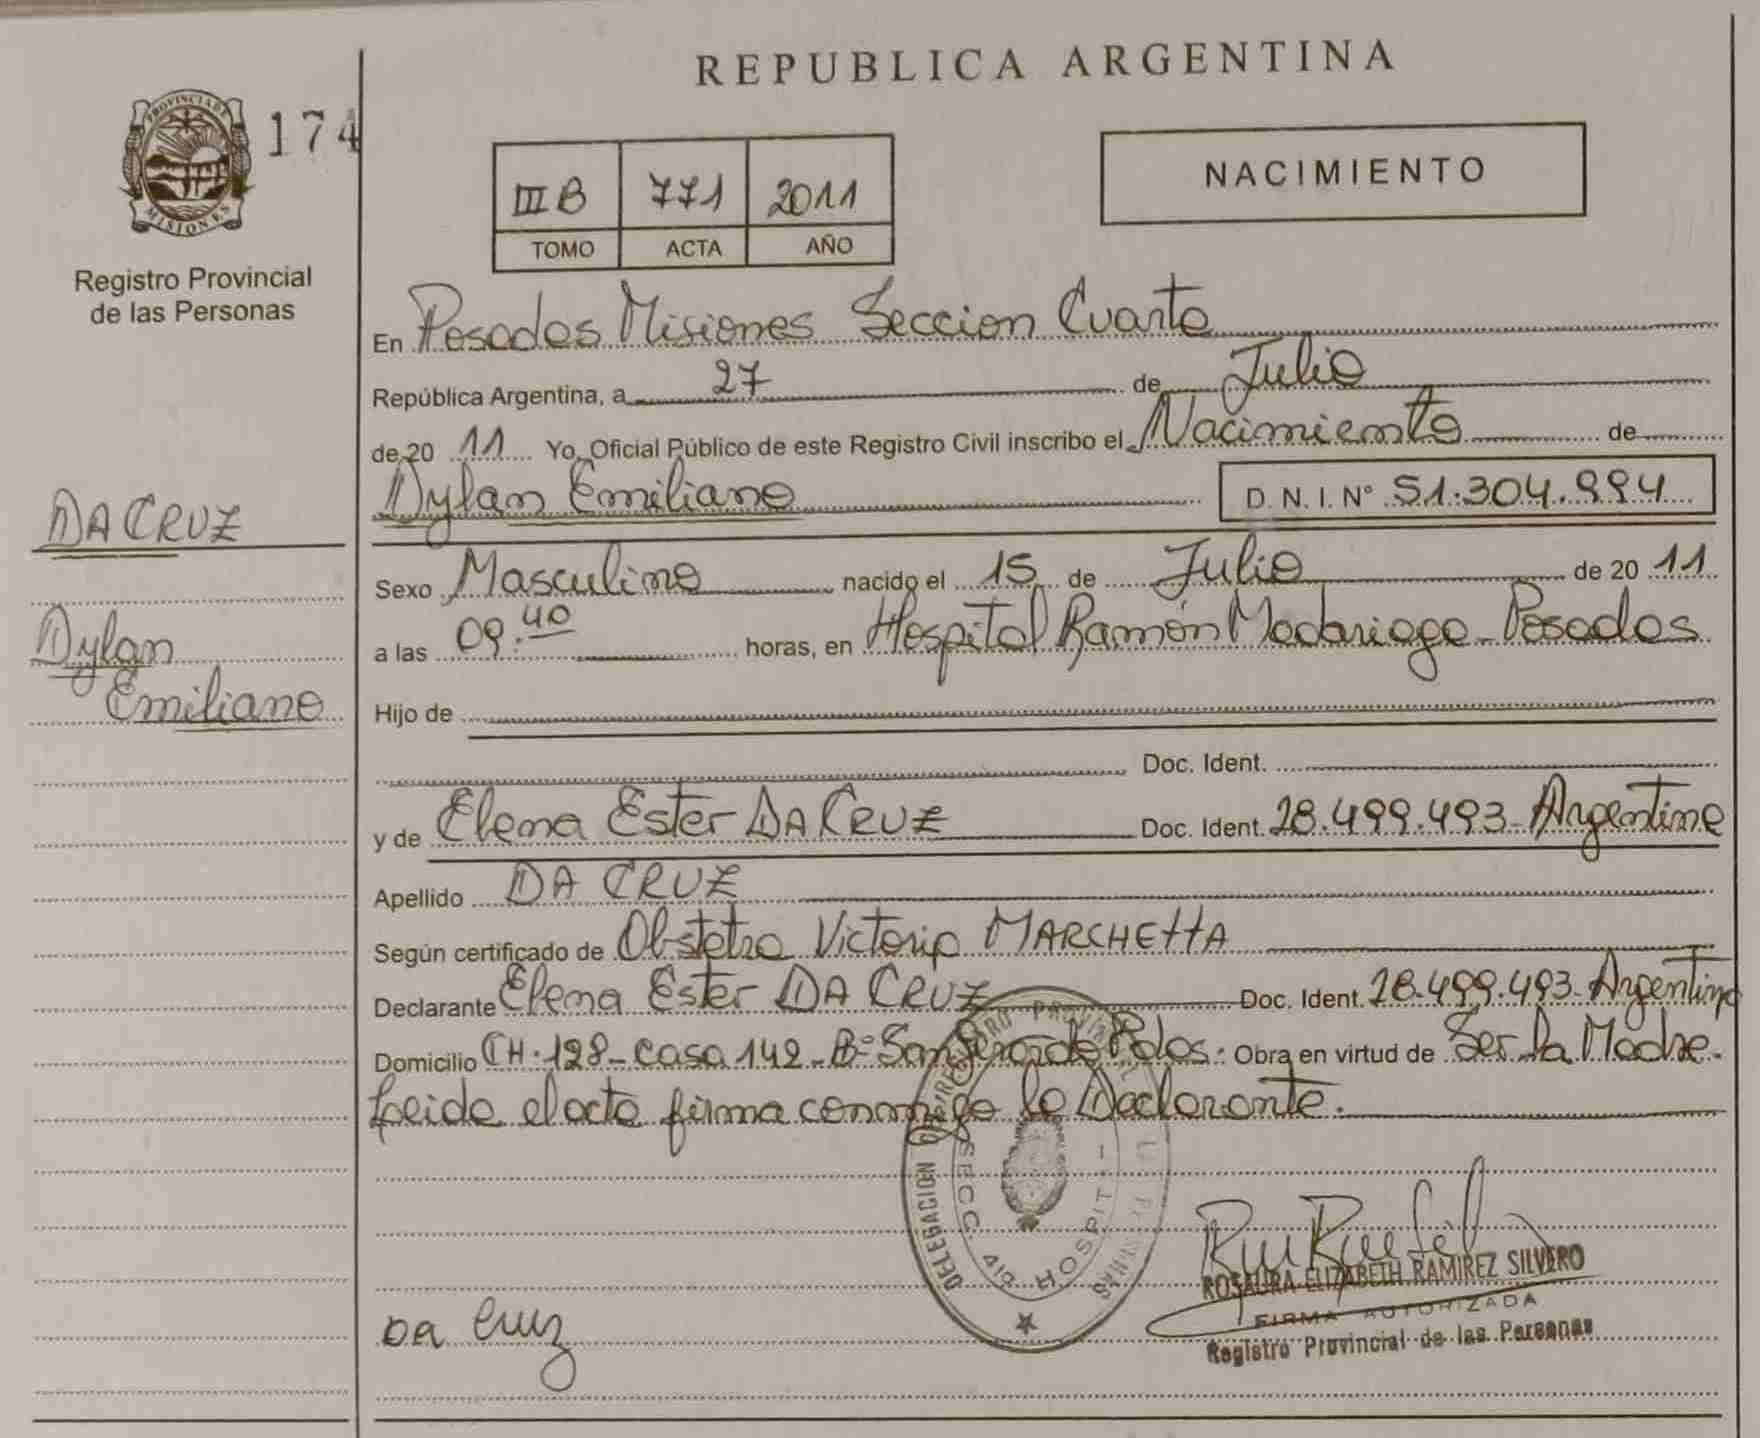 REPUBLICA ARGENTINA
PROVINCIA DE
MISIONES
174
Registro Provincial
de las Personas
III B 771 2011
TOMO ACTA AÑO
NACIMIENTO
En Posadas Misiones Seccion Cuarta
República Argentina, a 27 de Julio
de 20 11 Yo, Oficial Público de este Registro Civil inscribo el Nacimiento de
Dylan Emiliano D. N. I. Nº 51.304.994
DA CRUZ
Sexo Masculino nacido el 15 de Julio de 20 11
a las 09.40 horas, en Hospital Ramón Madariaga - Posadas
Dylan
Emiliano
Hijo de
Doc. Ident.
y de Elena Ester DA CRUZ Doc. Ident. 28.499.493 - Argentina
Apellido DA CRUZ
Según certificado de Obstetra Victoria MARCHETTA
Declarante Elena Ester DA CRUZ Doc. Ident. 28.499.493 - Argentina
Domicilio CH. 128 - casa 142 - Bº San de Obra en virtud de Ser la Madre.
Leida el acta firma conmigo la Declarante.
DELEGACION
SECC. 4ta HOSPIT
Da Cruz
ROSAURA ELIZABETH RAMIREZ SILVERO
FIRMA AUTORIZADA
Registro Provincial de las Personas